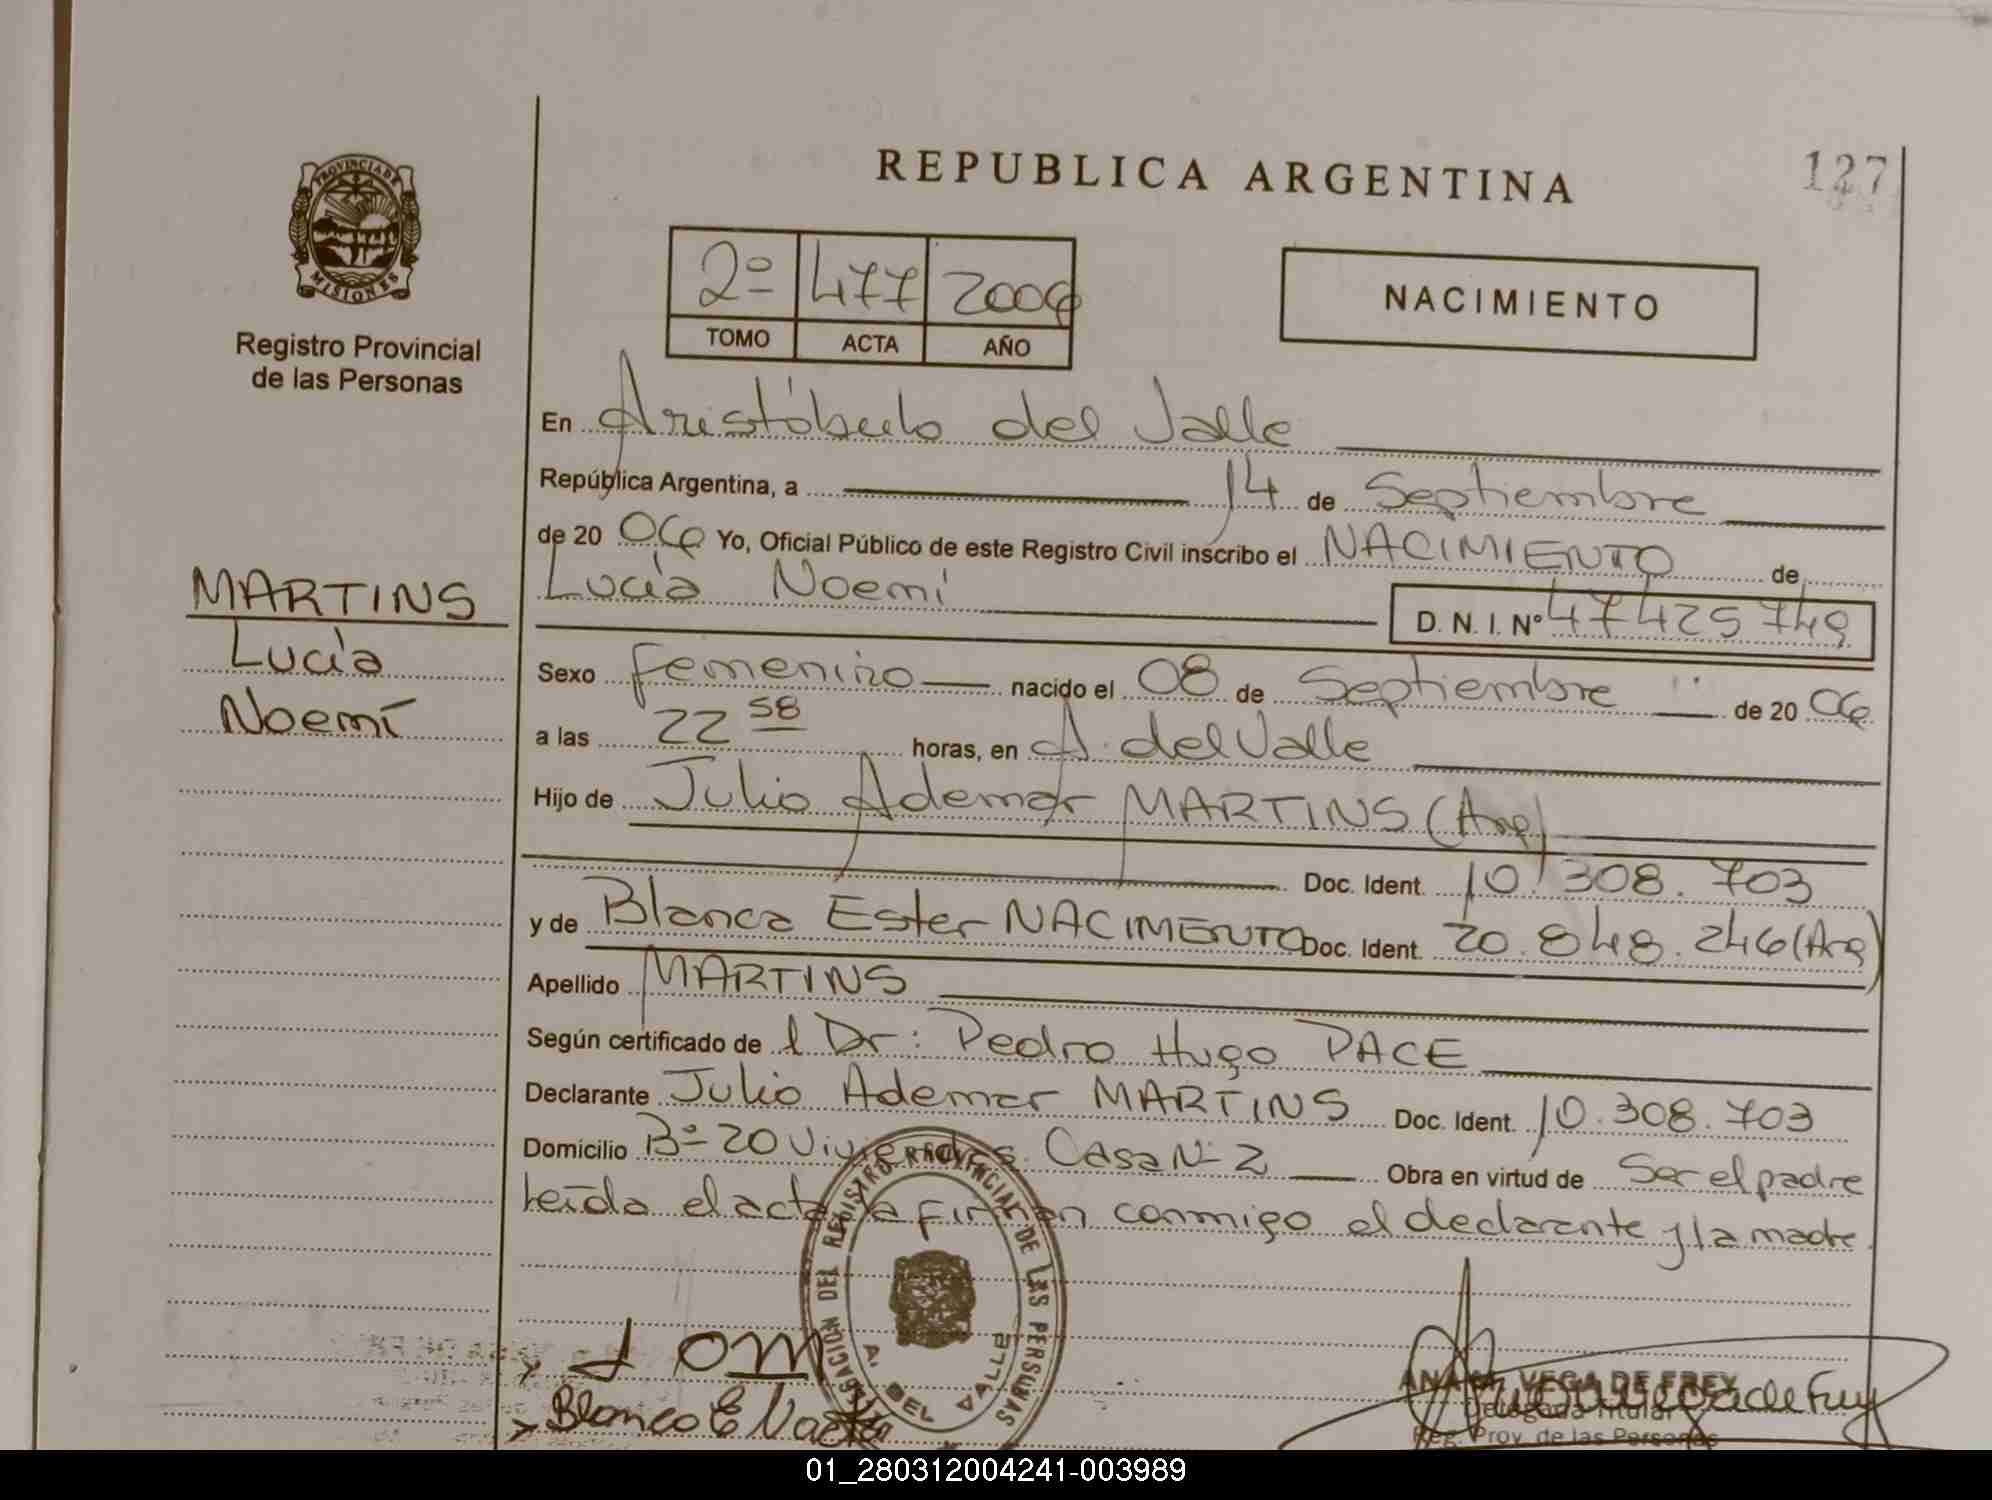 PROVINCIA DE
MISIONES
Registro Provincial
de las Personas
REPUBLICA ARGENTINA
127
2º 477 2006
TOMO ACTA AÑO
NACIMIENTO
En Aristóbulo del Valle
República Argentina, a 14 de Septiembre
de 20 06 Yo, Oficial Público de este Registro Civil inscribo el NACIMIENTO de
Lucía Noemí
D. N. I. Nº 47425749
MARTINS
Lucía
Noemí
Sexo femenino nacido el 08 de Septiembre de 20 06
a las 22 58 horas, en A. del Valle
Hijo de Julio Ademar MARTINS (Arg)
Doc. Ident. 10.308.703
y de Blanca Ester NACIMENTO Doc. Ident. 20.848.246 (Arg)
Apellido MARTINS
Según certificado de l Dr: Pedro Hugo PACE
Declarante Julio Ademar MARTINS Doc. Ident. 10.308.703
Domicilio Bº 20 Viviendas Casa Nº 2 Obra en virtud de Ser el padre
Leída el acta la firman conmigo el declarante y la madre
DELEGACION DEL REGISTRO PROVINCIAL DE LAS PERSONAS
A. DEL VALLE
J OM
Blanca E Nac
VEGA DE FREY
Delegada Titular
Reg. Prov. de las Personas
01_280312004241-003989